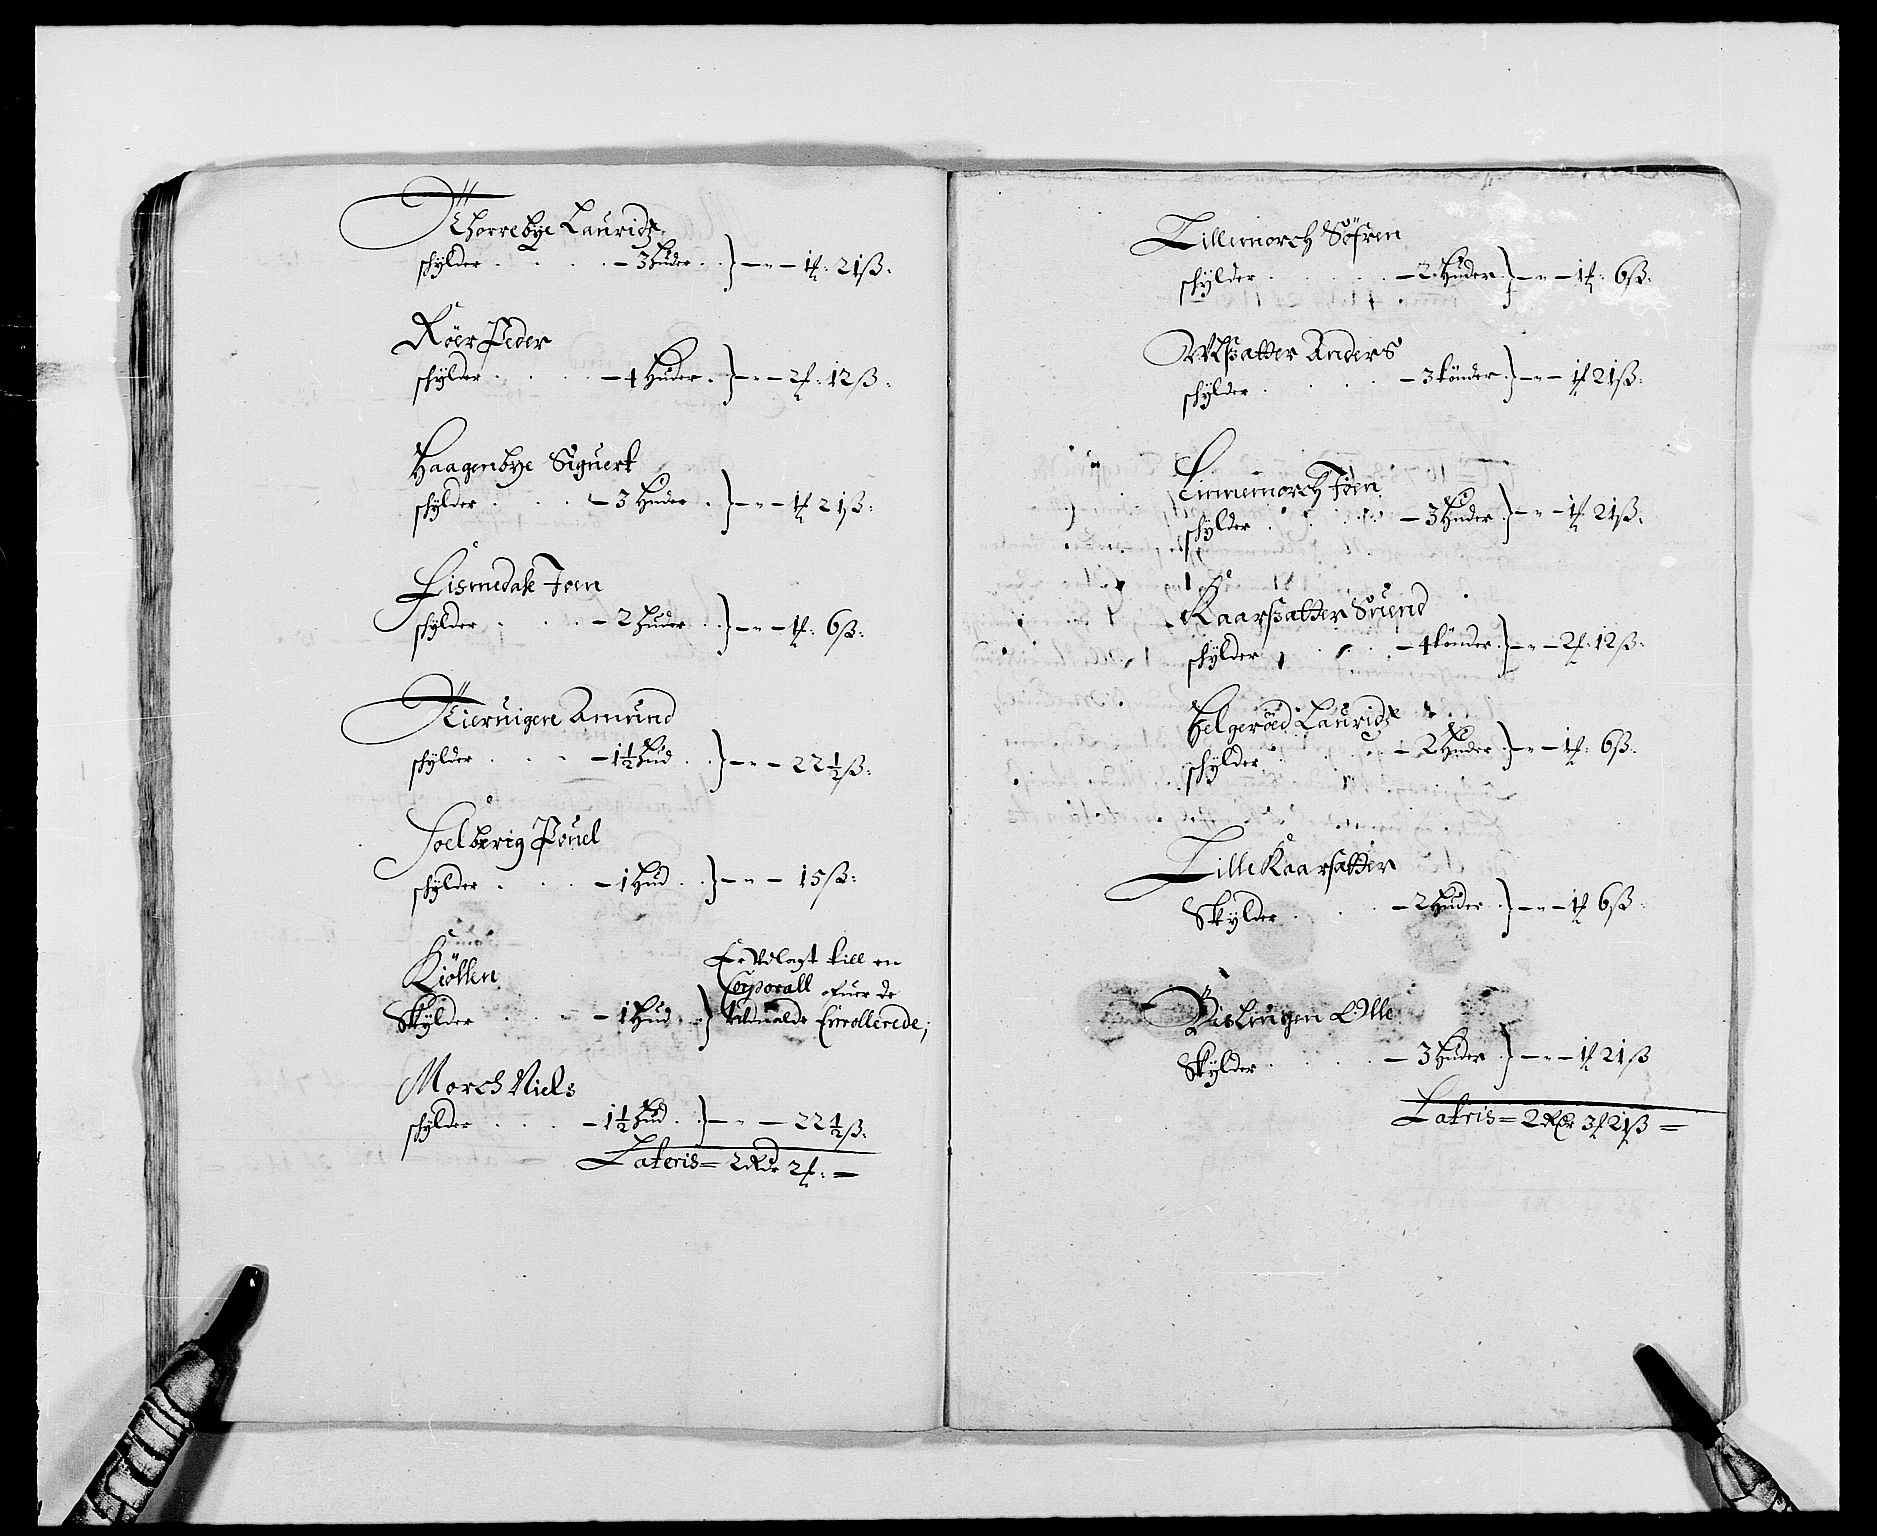 Thorrebye Lauridtz
schylder . . . . – 3 Huder . . } – – – 1 f: 21 ß:
Röer Peder
schylder . . . . – 4 Huder . } – – – 2 f: 12 ß:
Haagenbye Siguert
schylder . . . . – 3 Huder . } – – – 1 f 21 ß:
Lismedale Joen
schylder . . . . – 2 Huder . . } – – – 1 f: 6 ß:
Kieruigen Amund
schylder . . . – 1½ Hud . . } – – – 22½ ß:
Soelberig Pouel
schylder . . . . – 1 Hud . . } – – – 15 ß:
Kiölen
Skylder . . . – 1 Hud . . } Er Udlagt till en
Corporall ofuer de
Udualde Enrollerede;
Morch Niels
schylder . . . . – 1½ Hud . . } – – – 22½ ß:
Lateris = 2 Rdr 2 f: =
Lillemorch Söfren
schylder . . . . . – 2 Huder . } – – – 1 f: 6 ß:
Ulsatter Anders
schylder . . . . – 3 tönder . } – – – 1 f 21 ß:
Linnemorch Joen
schylder . . . . – 3 Huder . } – – – 1 f 21 ß:
Kaarsatter Suend
schylder . . . . – 4 tönder . } – – – 2 f: 12 ß:
Helgeröed Lauridtz
schylder . . . . – 2 Huder . } – – – 1 f: 6 ß:
Lille Kaarsatter
Skylder . . . . – 2 Huder . } – – – 1 f 6 ß:
Bislingen Olle
Skylder . . . . – 3 Huder . } – – – 1 f 21 ß
Lateris = 2 Rdr 3 f 21 ß =